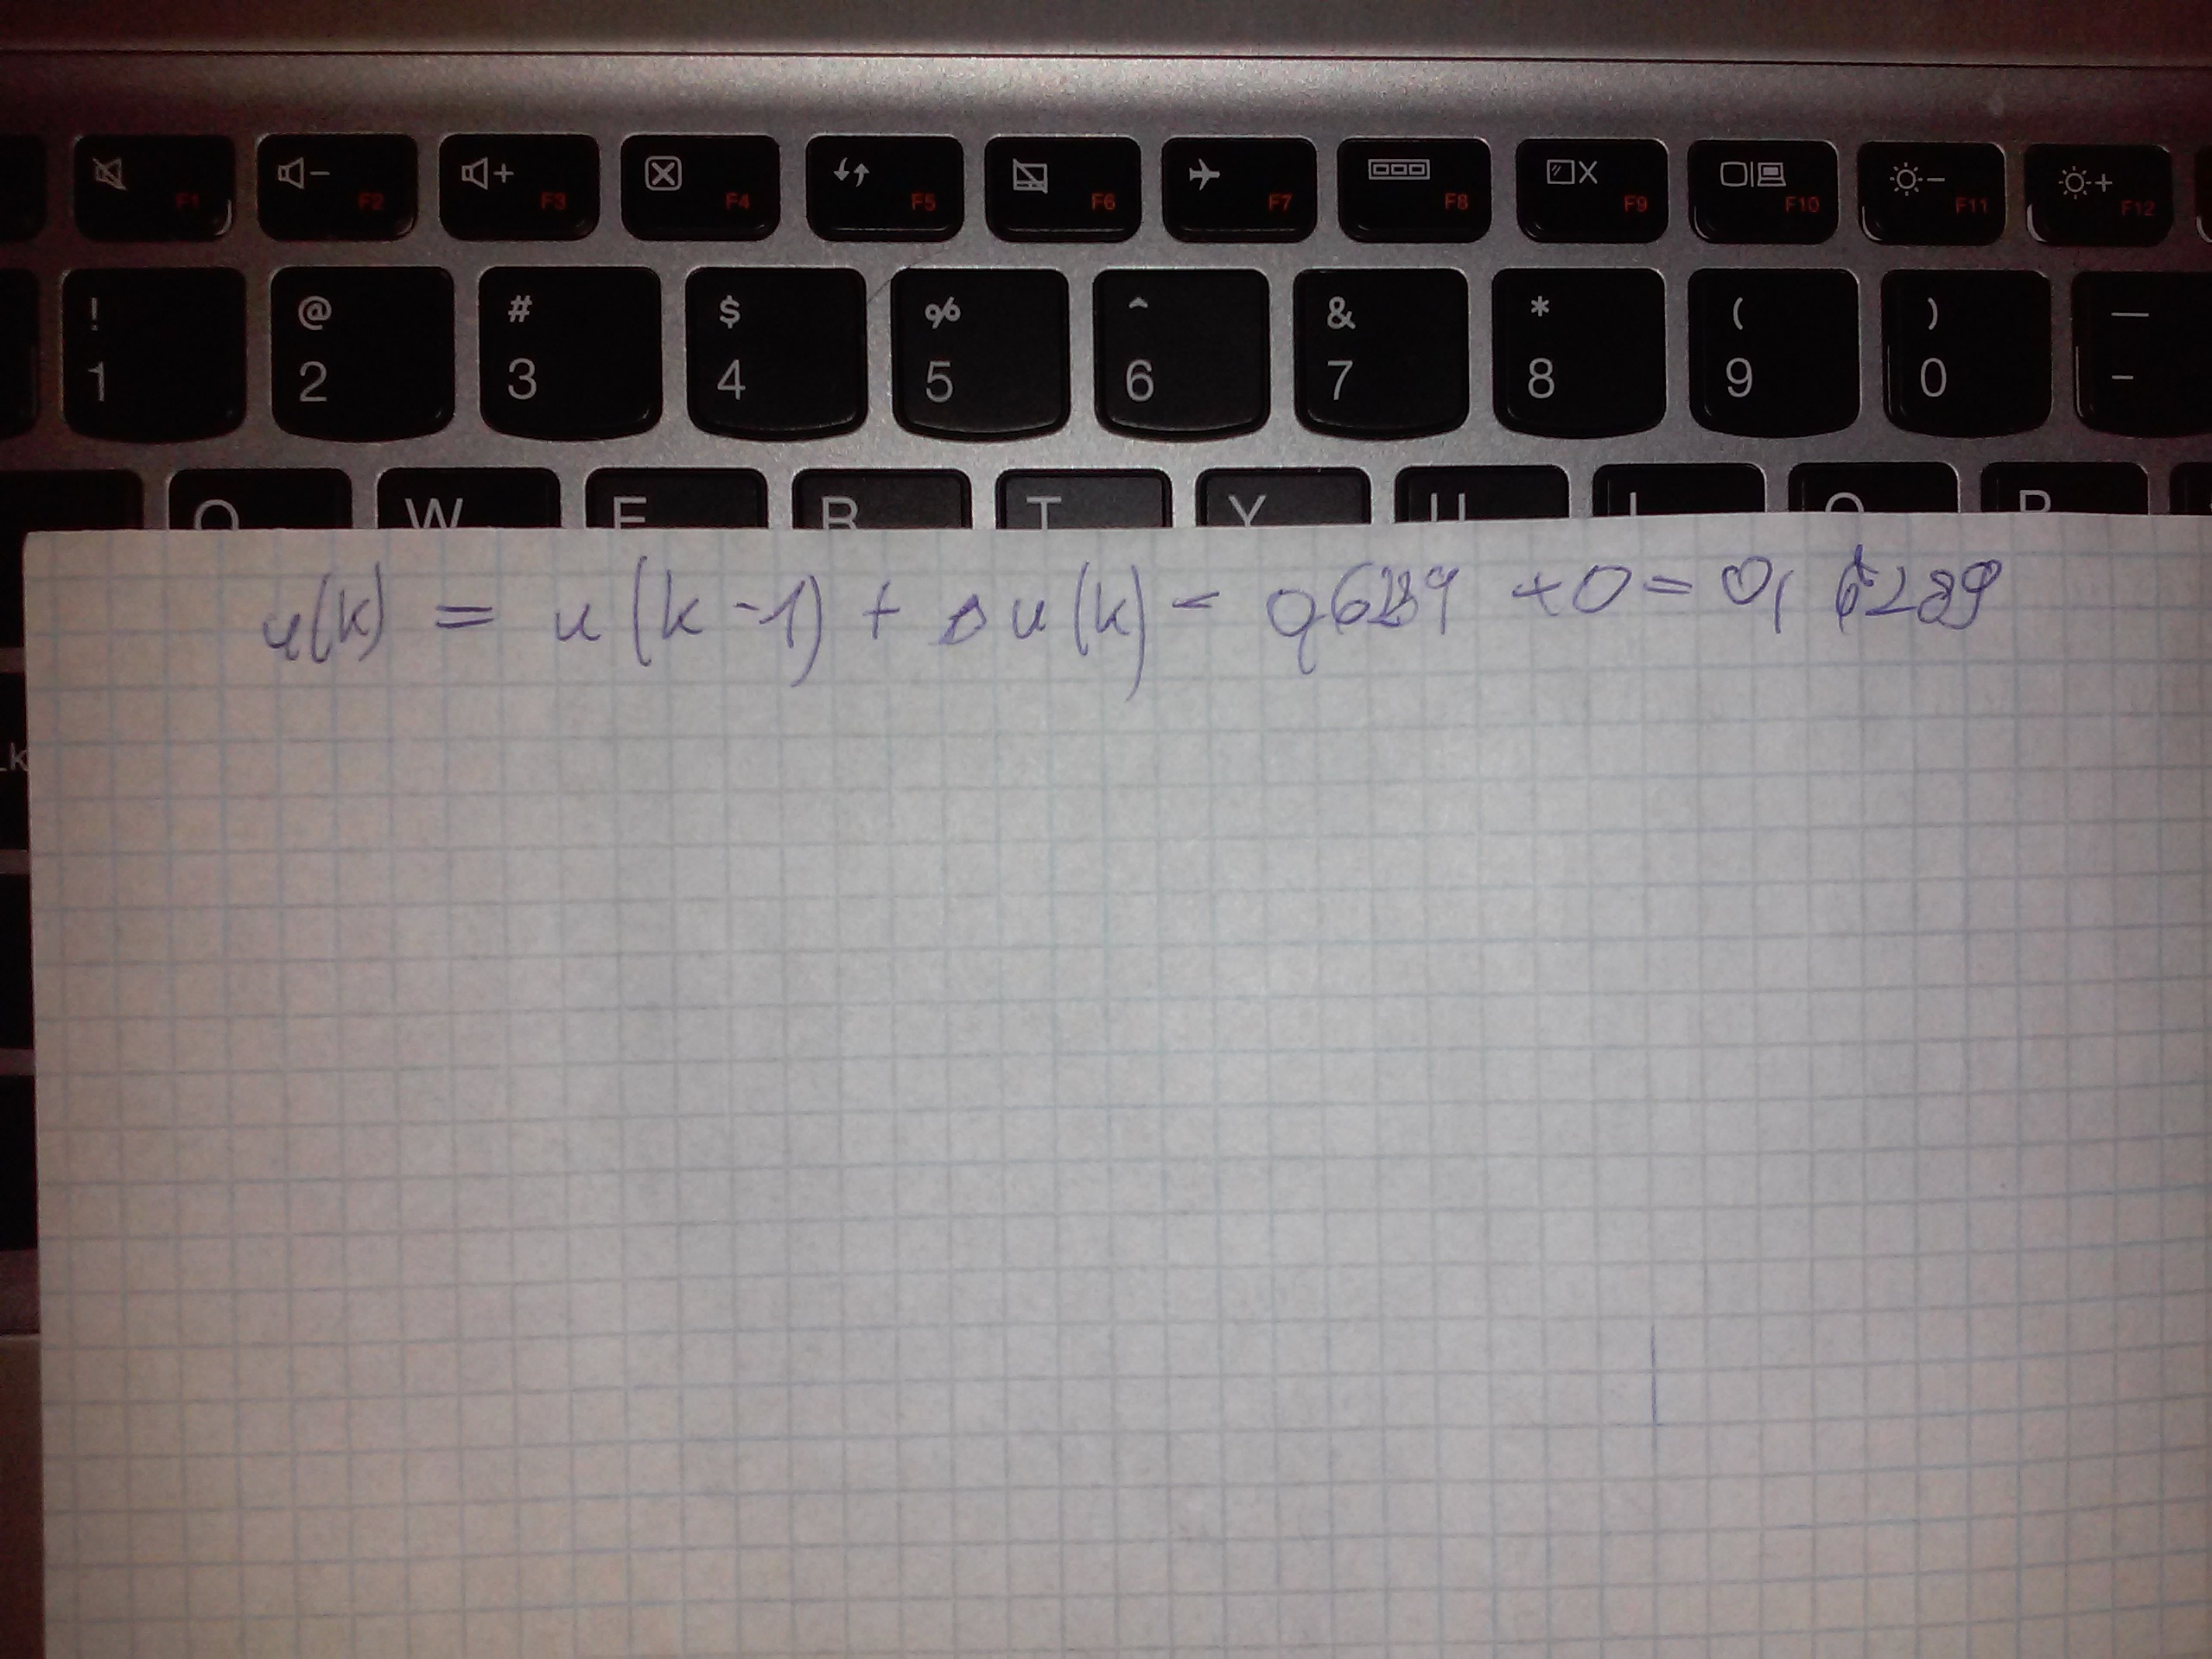 F1 F2 F3 F4 F5 F6 F7 F8 F9 F10 F11 F12
! @ # $ % ^ & * ( ) —
1 2 3 4 5 6 7 8 9 0 -
Q W E R T Y U I O P
u(k) = u(k-1) + Δu(k) = 0,6289 + 0 = 0,6289